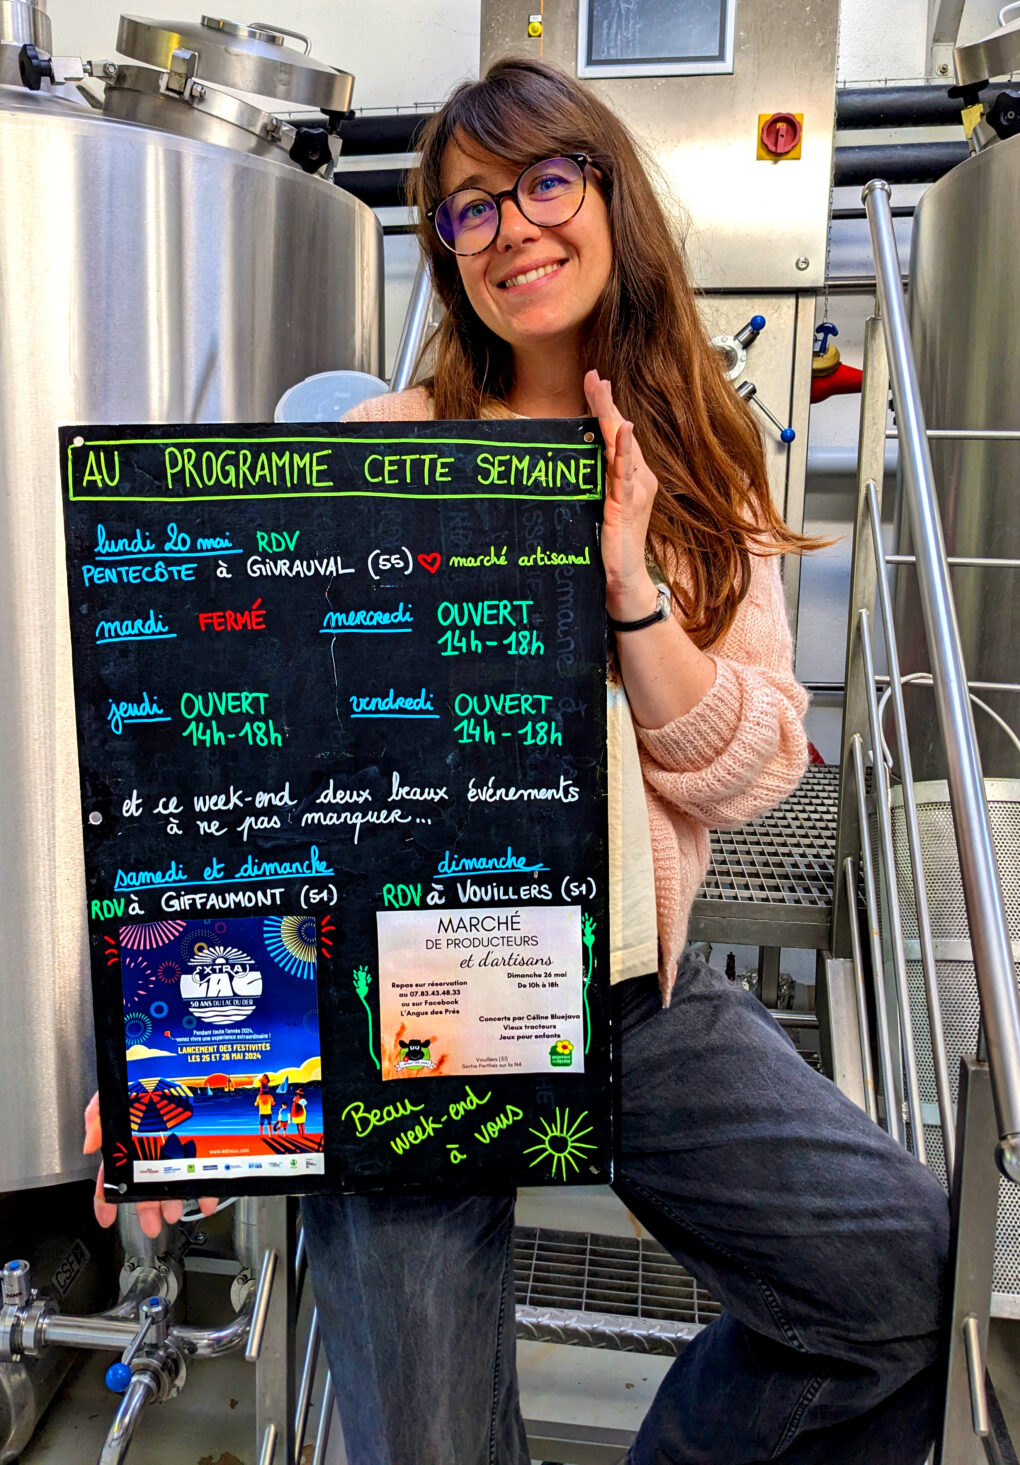 AU PROGRAMME CETTE SEMAINE
lundi 20 mai RDV
PENTECÔTE à GIVRAUVAL (55) marché artisanal
mardi FERMÉ
mercredi OUVERT
14h-18h
jeudi OUVERT
14h-18h
vendredi OUVERT
14h-18h
et ce week-end deux beaux événements
à ne pas manquer...
samedi et dimanche
RDV à GIFFAUMONT (51)
EXTRA
LAC
50 ANS DU LAC DU DER
Pendant toute l'année 2024,
venez vivre une expérience extraordinaire !
LANCEMENT DES FESTIVITÉS
LES 25 ET 26 MAI 2024
dimanche
RDV à VOUILLERS (51)
MARCHÉ
DE PRODUCTEURS
et d'artisans
Dimanche 26 mai
De 10h à 18h
Repas sur réservation
au 07.83.43.48.33
ou sur Facebook
L'Angus des Prés
Concerts par Céline Bluejava
Vieux tracteurs
Jeux pour enfants
Vouillers (51)
Sortie Perthes sur la N4
Beau
week-end
à vous
CSF